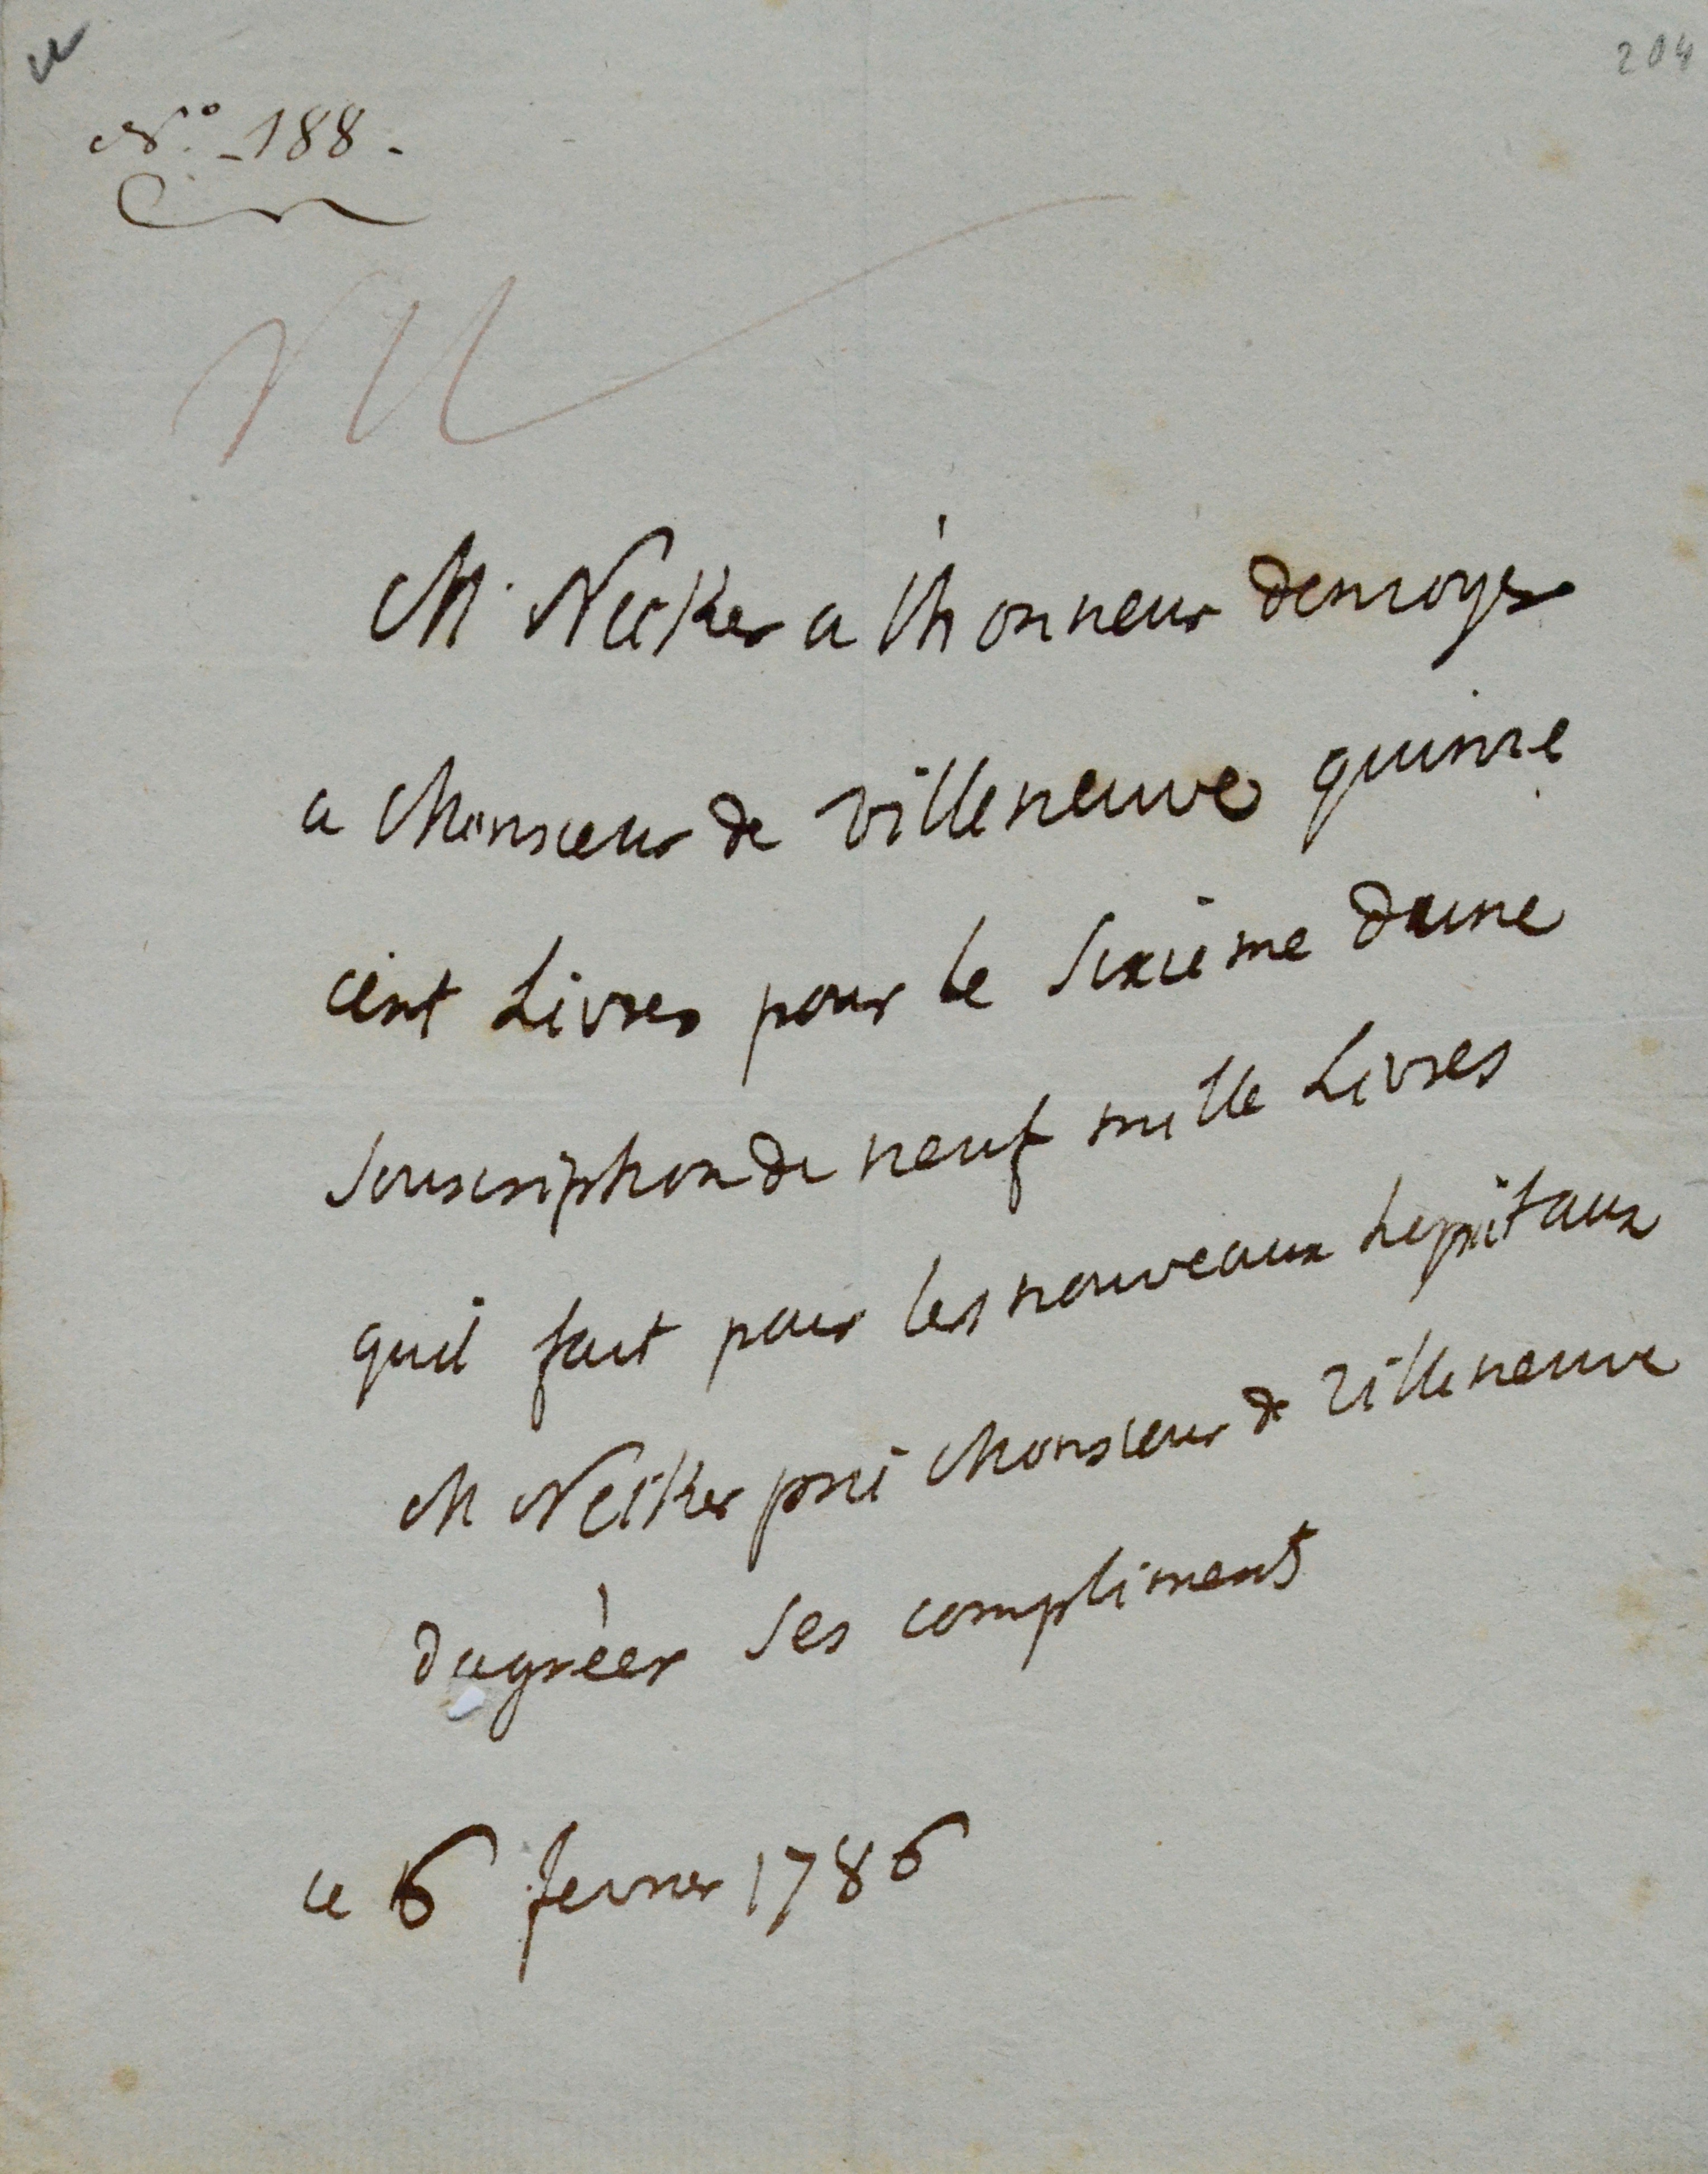 204
N.º 188.
M. Necker a l'honneur denvoyer
a Monsieur de Villeneuve quinze
cent Livres pour le Sixième dune
Souscription de neuf mille Livres
quil fait pour les nouveaux hopitaux
M Necker prie Monsieur de Villeneuve
dagréer Ses compliments
ce 6 fevrier 1786